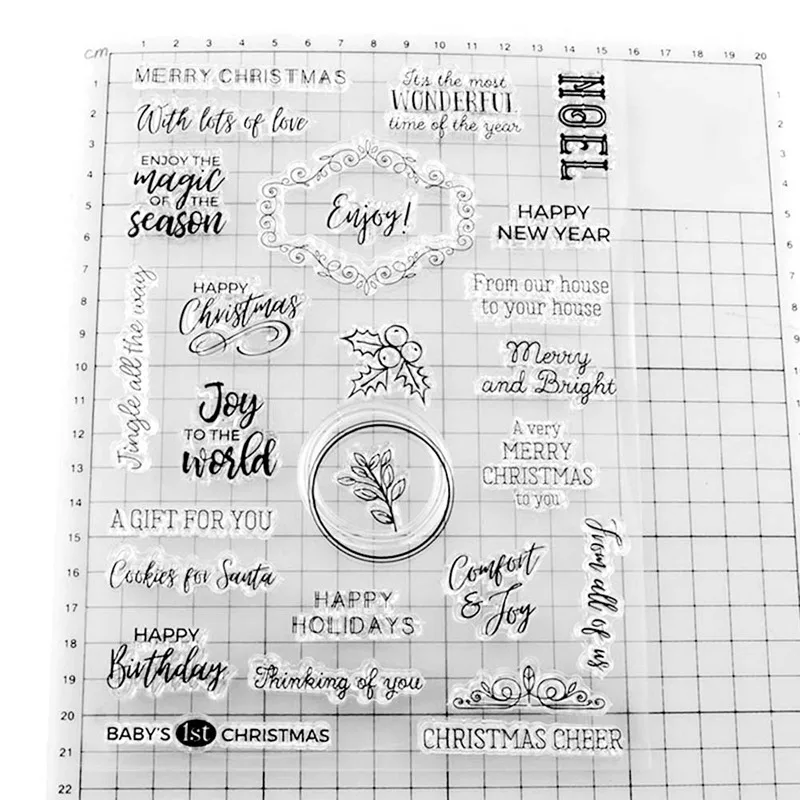 cm 1 2 3 4 5 6 7 8 9 10 11 12 13 14 15 16 17 18 19 20
1
2
3
4
5
6
7
8
9
10
11
12
13
14
15
16
17
18
19
20
21
22
1
2
3
4
5
MERRY CHRISTMAS
It's the most
WONDERFUL
time of the year
NOEL
With lots of love
ENJOY THE
magic
OF THE
season
Enjoy!
HAPPY
NEW YEAR
Jingle all the way
HAPPY
Christmas
From our house
to your house
Merry
and Bright
Joy
TO THE
world
A very
MERRY
CHRISTMAS
to you
A GIFT FOR YOU
Cookies for Santa
Comfort
& Joy
From all of us
HAPPY
HOLIDAYS
HAPPY
Birthday
Thinking of you
BABY'S 1st CHRISTMAS
CHRISTMAS CHEER